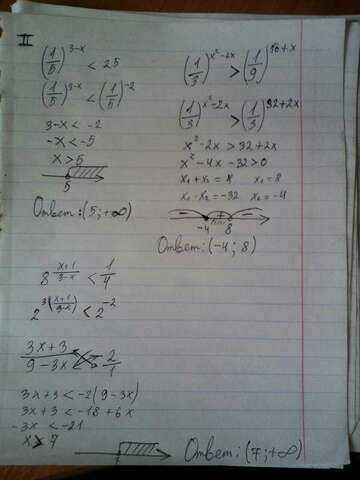 II
(1/5)^(3-x) < 25
(1/5)^(3-x) < (1/5)^(-2)
3-x < -2
-x < -5
x > 5
5
Ответ: (5; +∞)
(1/3)^(x²-2x) > (1/9)^(16+x)
(1/3)^(x²-2x) > (1/3)^(32+2x)
x²-2x > 32+2x
x²-4x-32>0
x₁+x₂ = 4 x₁=8
x₁·x₂=-32 x₂=-4
- + -
-4 8
Ответ: (-4; 8)
8^((x+1)/(3-x)) < 1/4
2^(3((x+1)/(3-x))) < 2^(-2)
(3x+3)/(9-3x) < -2/1
3x+3 < -2(9-3x)
3x+3 < -18+6x
-3x < -21
x > 7
Ответ: (7; +∞)